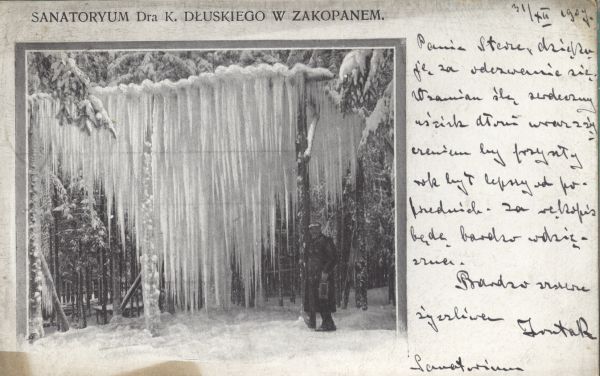 SANATORYUM Dra K. DŁUSKIEGO W ZAKOPANEM.
31/XII
Panie dzięku-
ję za odezwanie się.
Wzamian ślę serdeczny
uścisk dłoni wraz z ży-
czeniem by przyszły
rok był lepszy od po-
przednich. Za rękopis
będę bardzo wdzię-
Bardzo
życzliwa
Sanatorium